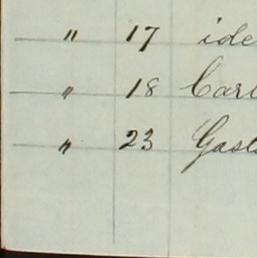 " 17 ide
" 18 Carl
" 23 Gast